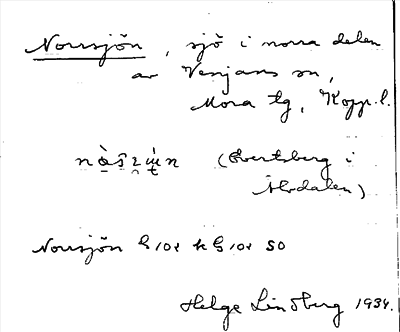 Norrsjön, sjö i norra delen
av Venjans sn,
Mora tg, Kopp. l.
(Evertsberg i
Älvdalen)
Norrsjön
Helge Lindberg 1934.